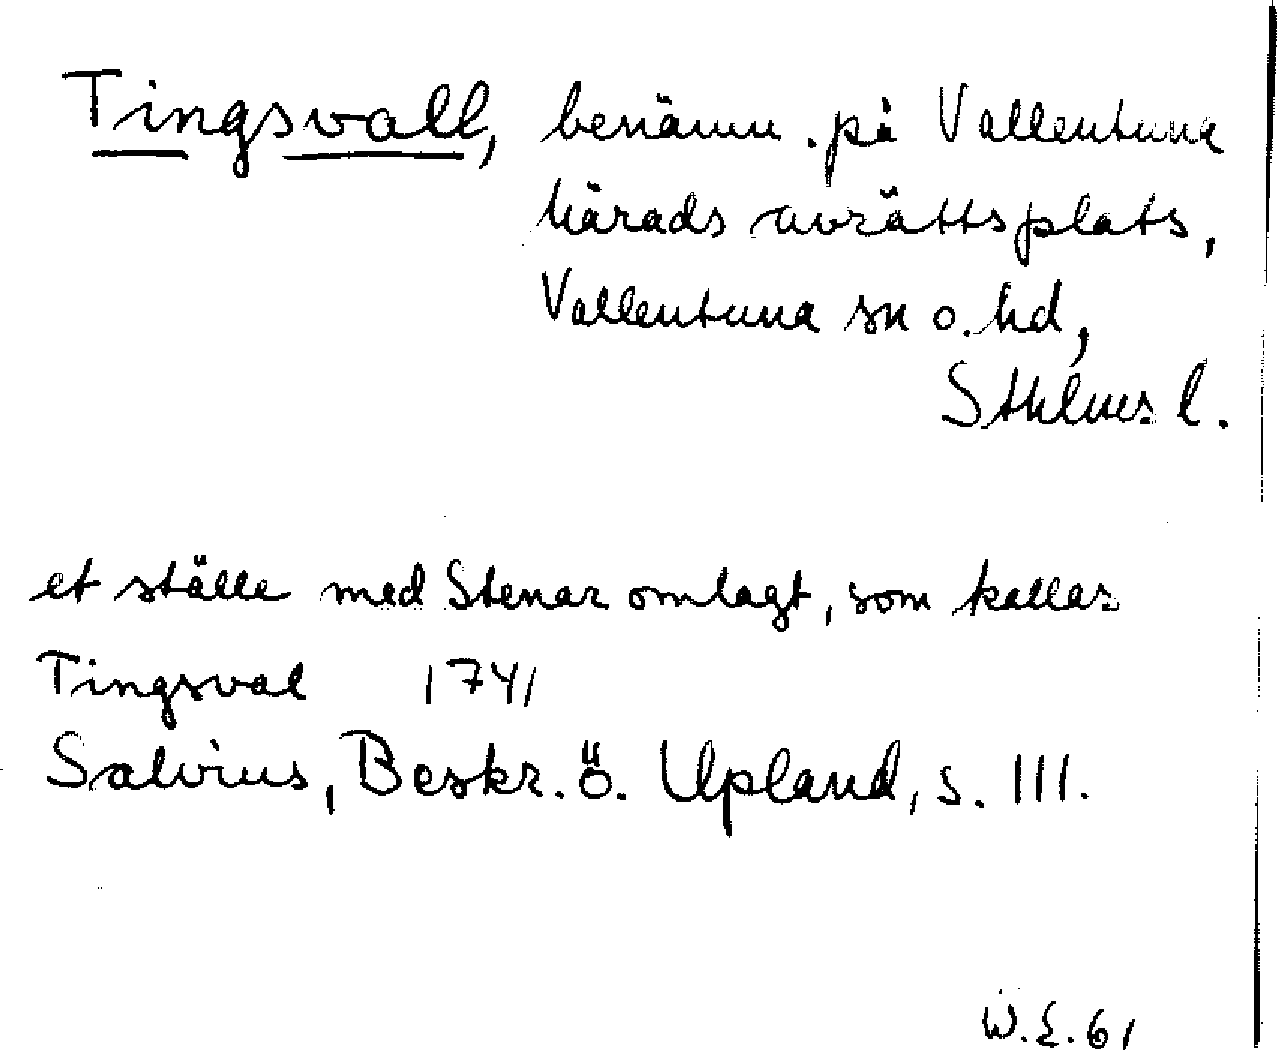 Tingsvall, benämn. på Vallentuna
härads avrättsplats,
Vallentuna sn o. hd,
Sthlms l.
et ställe med Stenar omlagt, som kallas
Tingsval 1741
Salvius, Beskr. ö. Upland, s. 111.
W.E.61